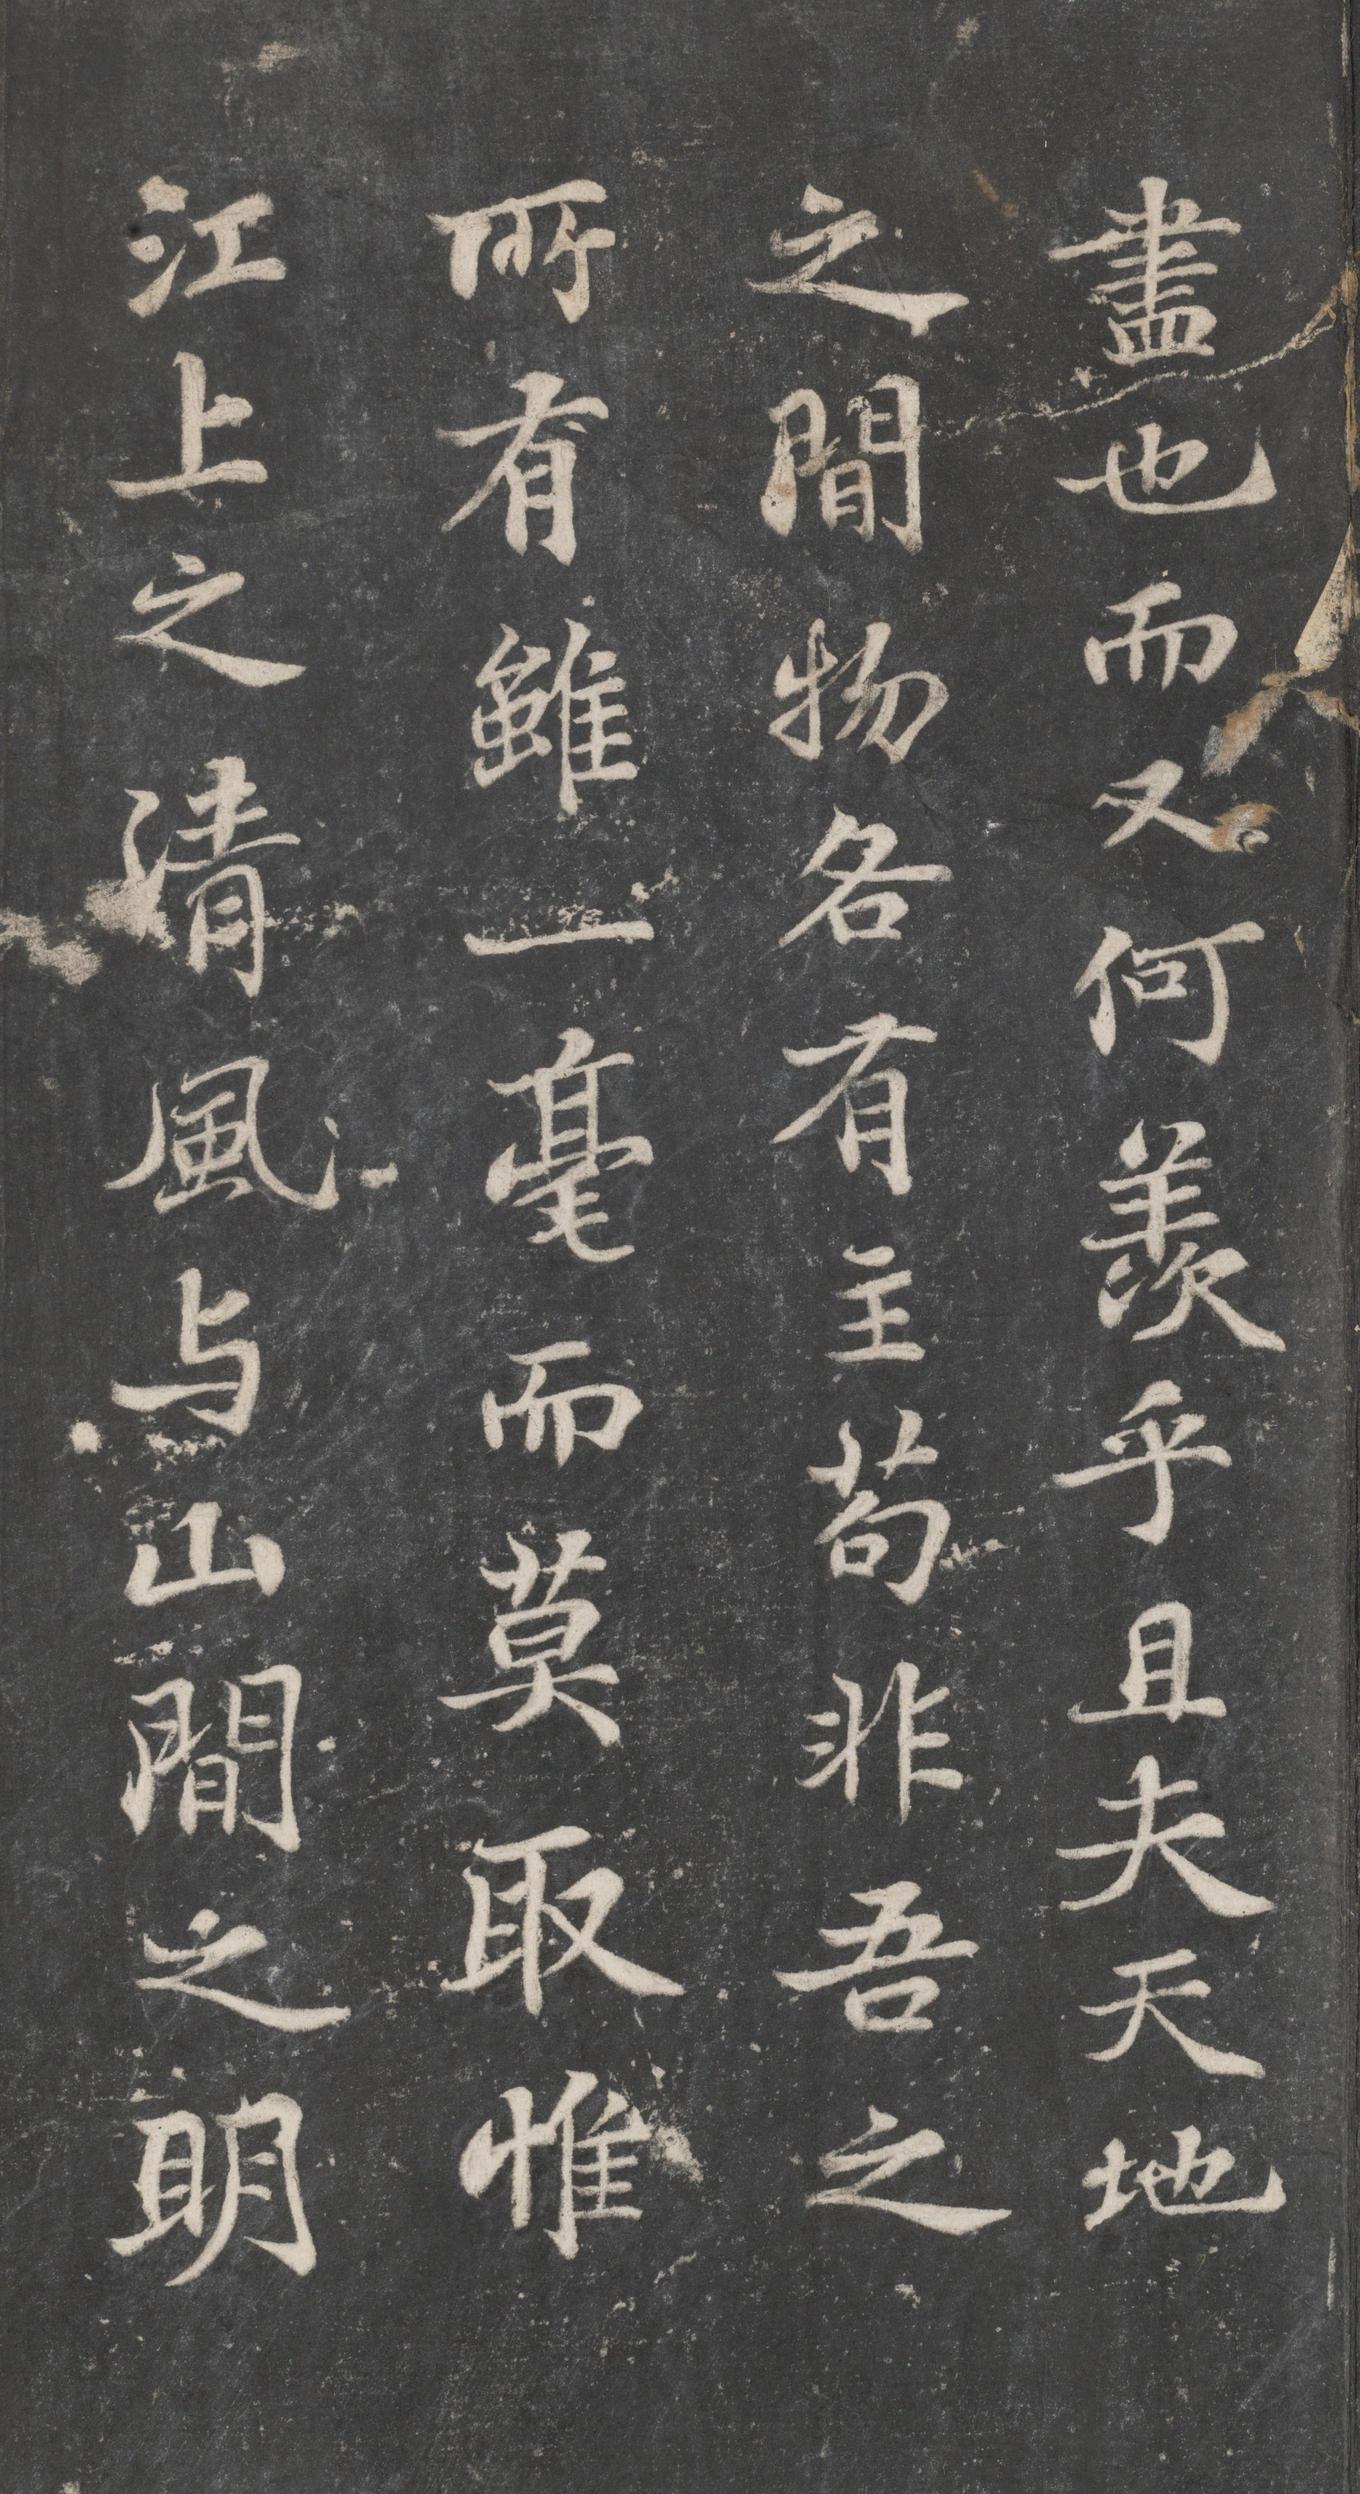 盡也而又何羨乎且夫天地
之間物各有主苟非吾之
所有雖一毫而莫取惟
江上之清風与山間之明